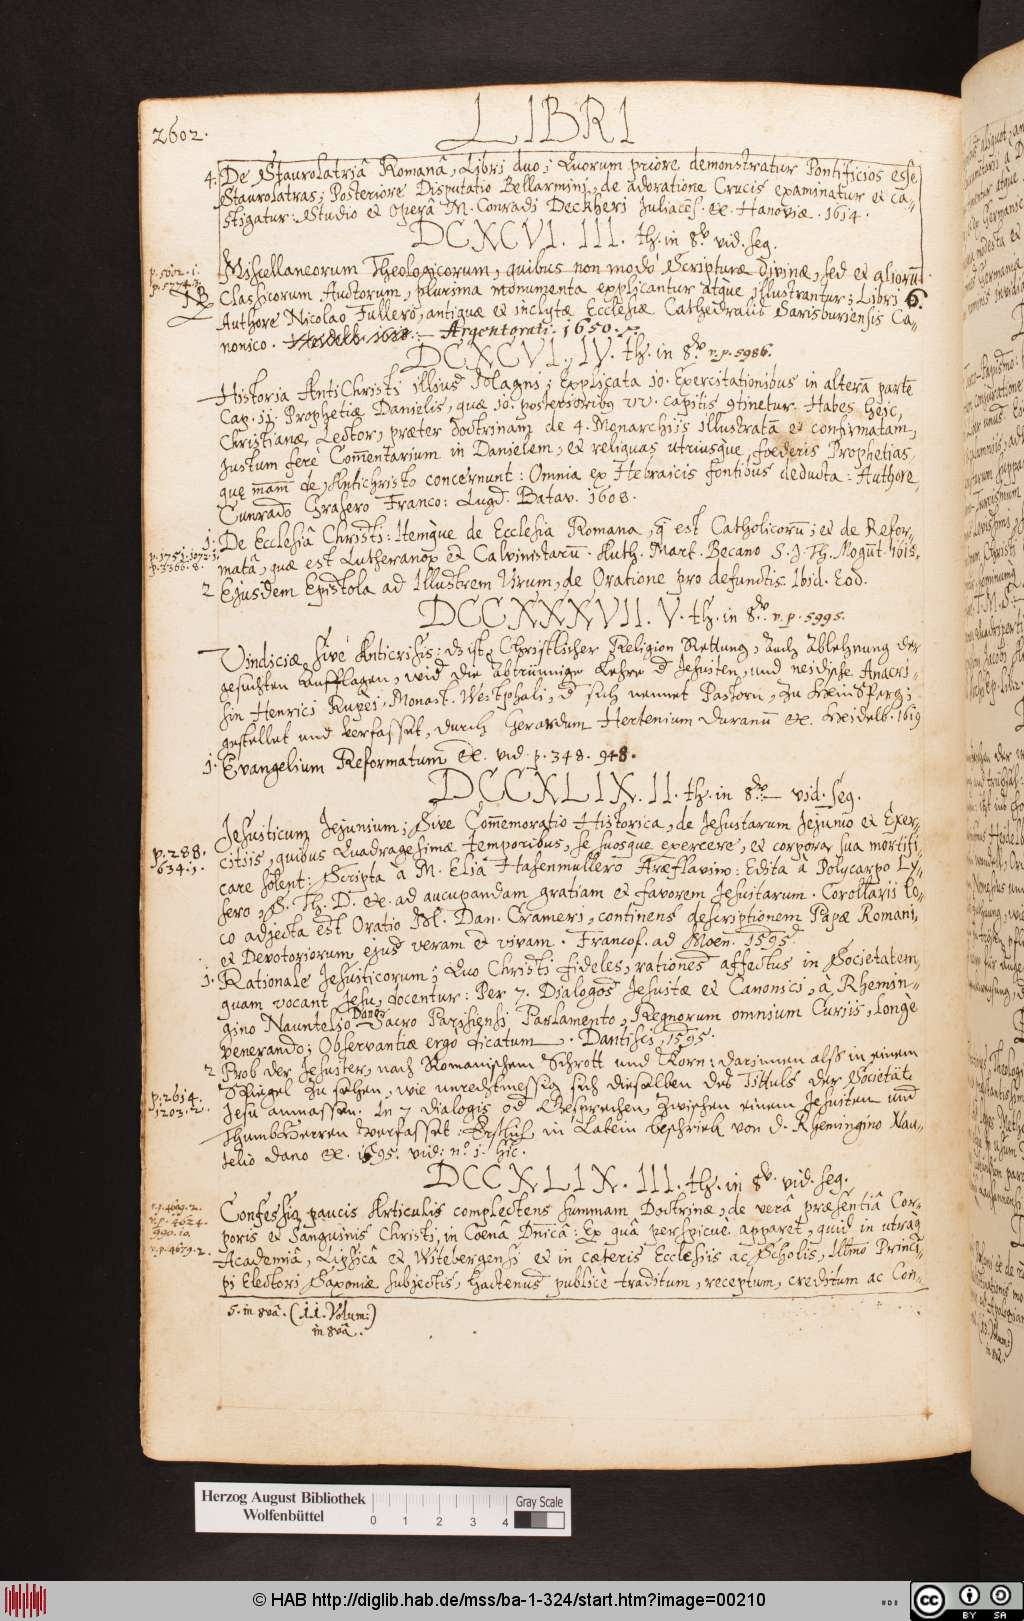 2602.
LIBRI
4. De Staurolatriâ Romanâ, Libri duo; Quorum priore demonstratur Pontificios esse
Staurolatras; Posteriore Disputatio Bellarmini, de adoratione Crucis examinatur et ca-
stigatur. Studio et Operâ M. Conradi Deckheri Juliaces. &c. Hanoviæ. 1614.
DCXCVI. III. th. in 8.º vid. seg.
p. 5602. 1.
p. 5774.
NB
Miscellaneorum Theologicorum, quibus non modò Scripturæ divinæ, sed et alioru
Classicorum Auctorum, plurima monumenta explicantur atque illustrantur; Libri 6.
Authore Nicolao Fullero, antiquæ et inclytæ Ecclesiæ Cathedralis Sarisburiensis Ca-
nonico. Heidelb. 1618. — Argentorati. 1650.
DCXCVI. IV. th. in 8.º v. p. 5986.
Historia AntiChristi illius Magni; Explicata 10. Exercitationibus in alterâ parte
Cap. 11. Prophetiæ Danielis, quæ 10. posterioribus vv. capitis 9tinetur. Habes heic,
Christianæ, Lector, præter doctrinam de 4. Monarchiis illustratâ et confirmatam,
Justum ferè Com̄entarium in Danielem, et reliquas utriusque, foederis Prophetias,
quę mam de, Antichristo concernunt: Omnia ex Hebraicis fontibus deducta: Authore,
Cunrado Grasero Franco: Lugd. Batav. 1608.
p. 1751. 1072. 1.
p. 5366. 8.
1. De Ecclesiâ Christi: Itemque de Ecclesia Romana, q̄ est Catholicorū; et de Refor-
matâ, quæ est Lutheranor et Calvinistarum. Auth. Mart. Becano S. J. Th. Mogut. 1615.
2 Ejusdem Epistola ad Illustrem Virum, de Oratione pro defunctis. Ibid. Eod.
DCCXXXVII. V. th. in 8.º v. p. 5995.
Vindiciæ sive Anticrisis: D ist, Christlicher Religion Rettung, auch Ablehnung der
gesuchten Aufflagen, wid die abtrünnige Lehre d Jesuiten, und neidische Anacri-
sin Henrici Rupei. Monast. Westphali, d sich nennet Pastorn, zu
gestellet und verfasset, durch Gerardum Hertenium Duranū &c. Heidelb. 1619
1. Evangelium Reformatum &c. vid. p. 348. 948.
DCCXLIX. II. th. in 8.º — vid. seg.
p. 288.
634. 1.
Jesuiticum Jejunium; Sive Com̄emoratio Historica, de Jesuitarum Jejunio et Exer-
citiis, quibus Quadragesimæ temporibus, se suosque exercere, et corpora sua mortifi
care solent: Scripta à M. Eliâ Hasenmullero Aræflavino: Edita à Polycarpo Ly-
sero, S. Th. D. &c. ad aucupandam gratiam et favorem Jesuitarum. Corollarii lo-
co adjecta est Oratio M. Dan. Crameri, continens descriptionem Papæ Romani,
et Devotoriorum ejus veram et vivam. Francof. ad Moen. 1595.
1. Rationale Jesuiticorum; Quo Christi fideles, rationes affectus in Societatem,
quam vocant Jesu, docentur: Per 7. Dialogos Jesuitæ et Canonici, à Rhemin-
gino Nauntelio Dano, Sacro Parisiensi Parlamento, Regnorum omnium Curiis, longè
venerando; Observantiæ ergo dicatum. Dantisci, 1595.
p. 2614.
1203. 2.
2 Prob der Jesuiter, nach Romanischem Schrott und Korn: darinnen alss in einem
Spiegel zu sehen, wie unrechtmessig sich dieselben des Tittuls der Societate
Jesu anmassen. In 7 dialogis od Gesprechen, zwischen einem Jesuiten und
Thumb-Herren verfasset: Erstlich in Latein beschrieb von D. Rhemingino Nau-
telio Dano &c. 1595. vid: n.º 1. hic.
DCCXLIX. III. th. in 8.º vid. seg.
v. p. 4619. 2.
v. p. 4624.
990. 10.
v. p. 4679. 2.
Confessio, paucis Articulis complectens summam Doctrinæ, de verâ præsentiâ Cor-
poris et Sanguinis Christi, in Coenâ Dn̄icâ: Ex quâ perspicuè apparet, quid in utraq
Academiâ, Lipsicâ et Witebergensi et in cæteris Ecclesiis ac Scholis, Illmo Princi
pi Electori Saxoniæ subjectis, hactenus publicè traditum, receptum, creditum ac Con-
5. in 8vâ. (11. Volum:)
in 8vâ.
Herzog August Bibliothek
Wolfenbüttel
0 1 2 3 4
Gray Scale
© HAB http://diglib.hab.de/mss/ba-1-324/start.htm?image=00210
cc BY SA